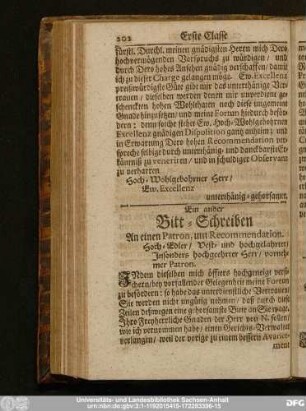 202 Erste Classe
Fürstl. Durchl. meinen gnädigsten Herrn mich Dero
hochvermögenden Vorspruchs zu würdigen / und
durch Dero hohes Ansehen gnädig verschaffen / damit
ich zu dieser Charge gelangen möge. Ew. Excellenz
preißwürdigste Güte gibt mir das unterthänige Ver-
trauen / dieselben werden denen mir unverdient ge-
schenckten hohen Wohlthaten noch diese ungemeine
Gnade hinzu setzen / und meine Fortun hiedurch beför-
dern: denn solche stehet Ew. Hoch-Wohlgebohrner
Excellenz gnädigen Disposition gantz anheim; und
in Erwartung Dero hohen Recommendation ver-
spreche selbige durch unterthänig- und danckbarste Er-
känntniß zu veneriren / und in schuldiger Observanz
zu verharren
Hoch-Wohlgebohrner Herr /
Ew. Excellenz
unterthänig-gehorsamer.
Ein ander
Bitt-Schreiben
An einen Patron, um Recommendation.
Hoch-Edler / Vest- und hochgelahrter /
Insonders hochgeehrter Herr / vorneh-
mer Patron.
INdem dieselben mich öffters hochgeneigt versi-
chern / bey vorfallender Gelegenheit meine Fortun
zu befördern: so habe das unverdienstliche Vertrauen
Sie werden nicht ungütig nehmen / daß durch diese
Zeilen deßwegen eine gehorsamste Bitte an Sie wage.
Ihro Freyherrliche Gnaden der Herr von N. sollen /
wie ich vernommen habe / einen Gerichts-Verwalter
verlangen / weil der vorige zu einem bessern
Universitäts- und Landesbibliothek Sachsen-Anhalt
urn:nbn:de:gbv:3:1-1192015415-172283396-15
DFG